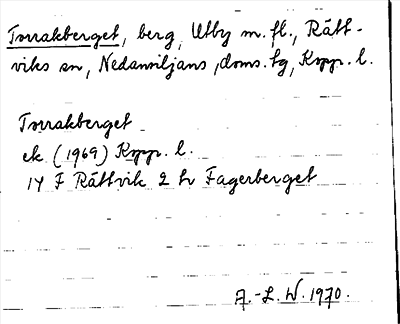 Torrakberget, berg, Utby m.fl., Rätt-
viks sn, Nedansiljans doms. tg, Kopp. l.
Torrakberget
ek (1969) Kopp. l.
14 F Rättvik 2 h Fagerberget
A.-L. W. 1970.